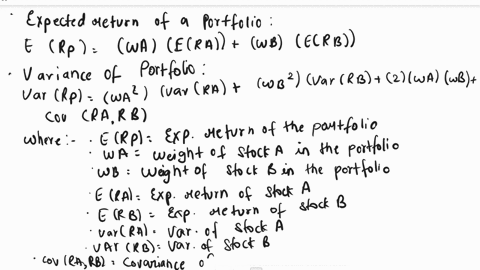 · Expected return of a Portfolio :
E (Rp) = (WA) (E(RA)) + (WB) (E(RB))
· Variance of Portfolio :
Var (Rp) = (WA²) (Var (RA) + (WB²) (Var (RB) + (2) (WA) (WB) +
Cov (RA, RB)
where :- · E (Rp) = Exp. return of the portfolio
· WA = weight of stock A in the portfolio
· WB = weight of stock B in the portfolio
· E (RA) = Exp. return of stock A
· E (RB) = Exp. return of stock B
· Var (RA) = Var. of stock A
· VAR (RB) = Var. of stock B
· Cov (RA, RB) = Covariance